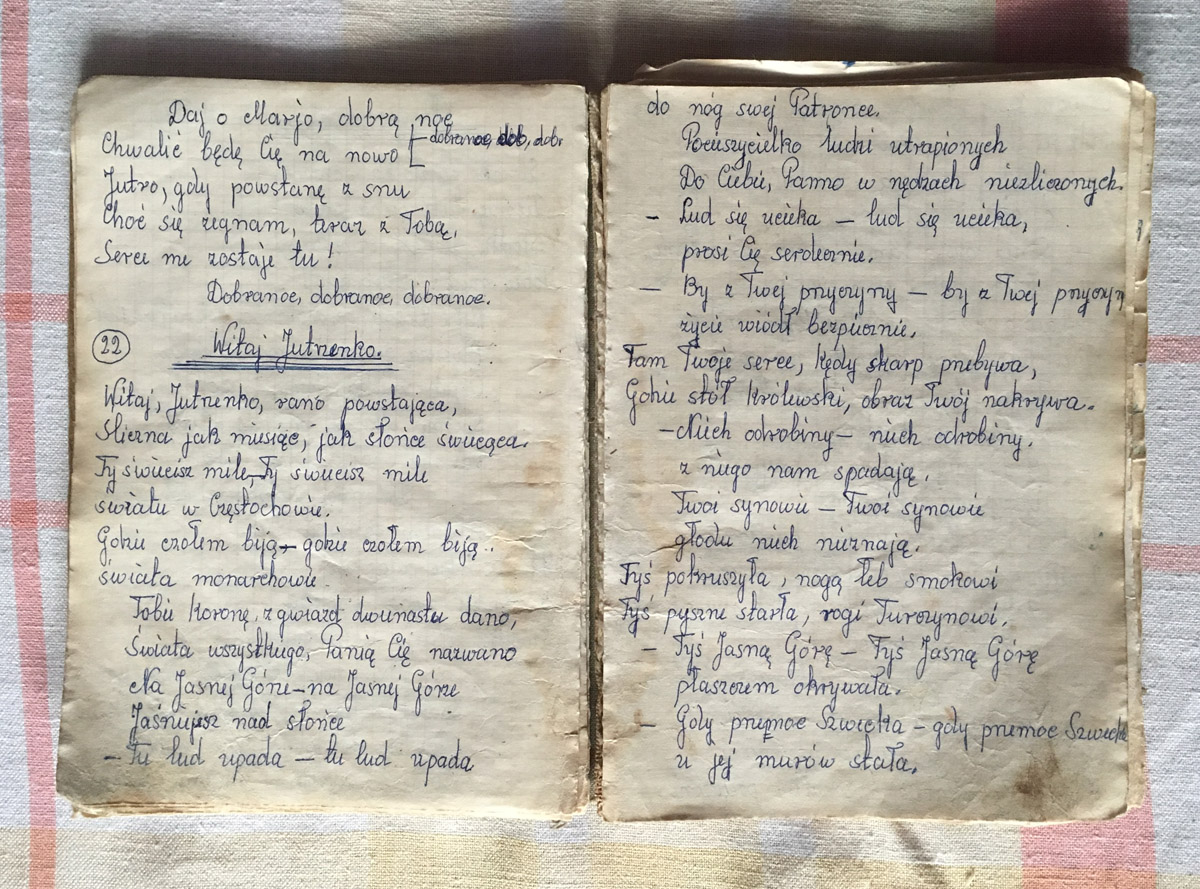 Daj o Marjo, dobrą noc
Chwalić będę Cię na nowo [ dobranoc, dob, dobr
Jutro, gdy powstanę z snu
choć się żegnam, teraz z Tobą,
Serce me zostaje tu!
Dobranoc, dobranoc, dobranoc.
22 Witaj Jutrzenko.
Witaj, Jutrzenko, rano powstająca,
śliczna jak miesiąc, jak słońce świecąca.
Ty świecisz mile, Ty świecisz mile
światu w Częstochowie.
Gdzie czołem biją – gdzie czołem biją.
świata monarchowie.
Tobie koronę, z gwiazd dwunastu dano,
Świata wszystkiego, Panią Cię nazwano
Na Jasnej Górze – na Jasnej Górze
Jaśniejesz nad słońce
– tu lud upada – tu lud upada
do nóg swej Patronce.
Pocieszycielko ludzi utrapionych
Do Ciebie, Panno w nędzach niezliczonych.
– Lud się ucieka – lud się ucieka,
prosi Cię serdecznie.
– By z Twej przyczyny – by z Twej przyczyn
życie wiódł bezpiecznie.
Tam Twoje serce, kędy skarp przebywa,
Gdzie stół Królewski, obraz Twój nakrywa.
– Niech odrobiny – niech odrobiny.
z niego nam spadają.
Twoi synowie – Twoi synowie
głodu niech nieznają.
Tyś pokruszyła, nogą łeb smokowi
Tyś pyszne starła, rogi Turczynowi.
– Tyś Jasną Górę – Tyś Jasną Górę
płaszczem okrywała.
– Gdy przemoc Szwecka – gdy przemoc Szweck
u jej murów stała.